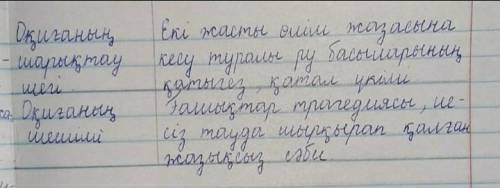 Оқиғаның Екі жасты өлім жазасына
- шарықтау кесу туралы ру басшыларының
шегі қатыгез, қатал үкімі
са, Оқиғаның Ғашықтар трагедиясы, ие-
шешімі сіз тауда шырқырап қалған
жазықсыз сәби